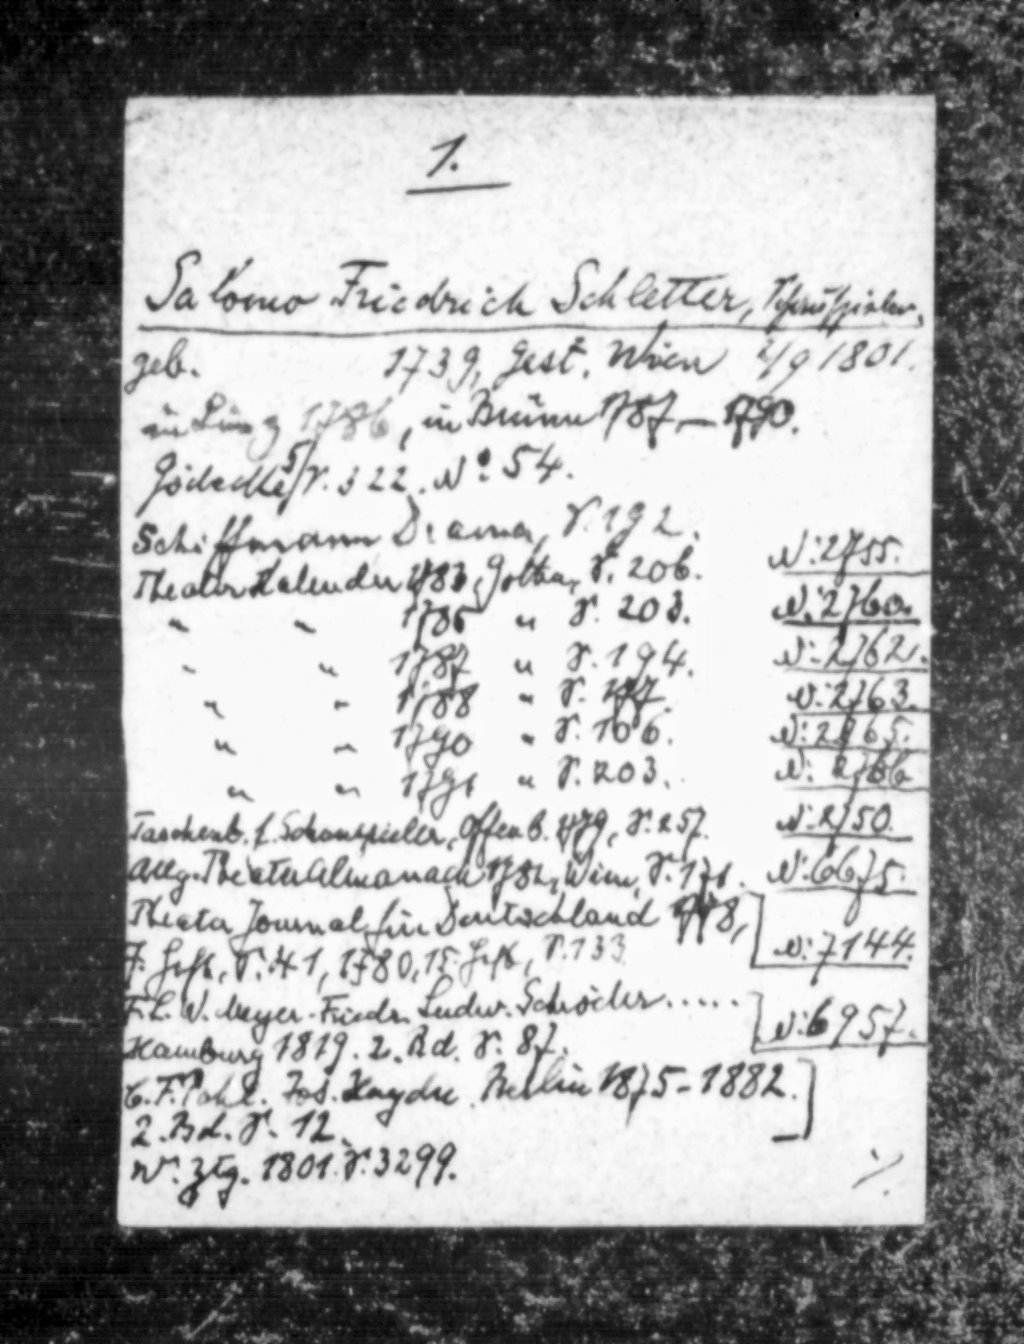 1.
Salomo Friedrich Schletter, Schauspieler,
geb. 1739, gest. Wien 2/9 1801.
in Linz 1786, in Brünn 1787–1790.
Gödeke 5/S. 322. N° 54.
Schiffmann Drama, S. 192.
Theater Kalender 1783, Gotha, S. 206. N: 2755.
" " 1785 " S. 203. N: 2760.
" " 1787 " S. 194. N: 2762.
" " 1788 " S. N: 2763.
" " 1790 " S. 106. N: 2765.
" " 1791 " S. 203. N: 2766
Taschenb. f. Schauspieler, Offenb. 1779, S. 257. N: 2750.
Allg. Theater Almanach 1782, Wien, S. 171. N: 6675.
Theater Journal für Deutschland 1778,
7. Heft, S. 41, 1780, 15. Heft, S. 133 N: 7144.
F. L. W. Meyer. Friedr. Ludw. Schröder.....
Hamburg 1819. 2. Bd. S. 87. N: 6957.
C. F. Pohl. Jos. Haydn. Berlin 1875–1882.
2. Bd. S. 12.
W. Ztg. 1801. S. 3299.